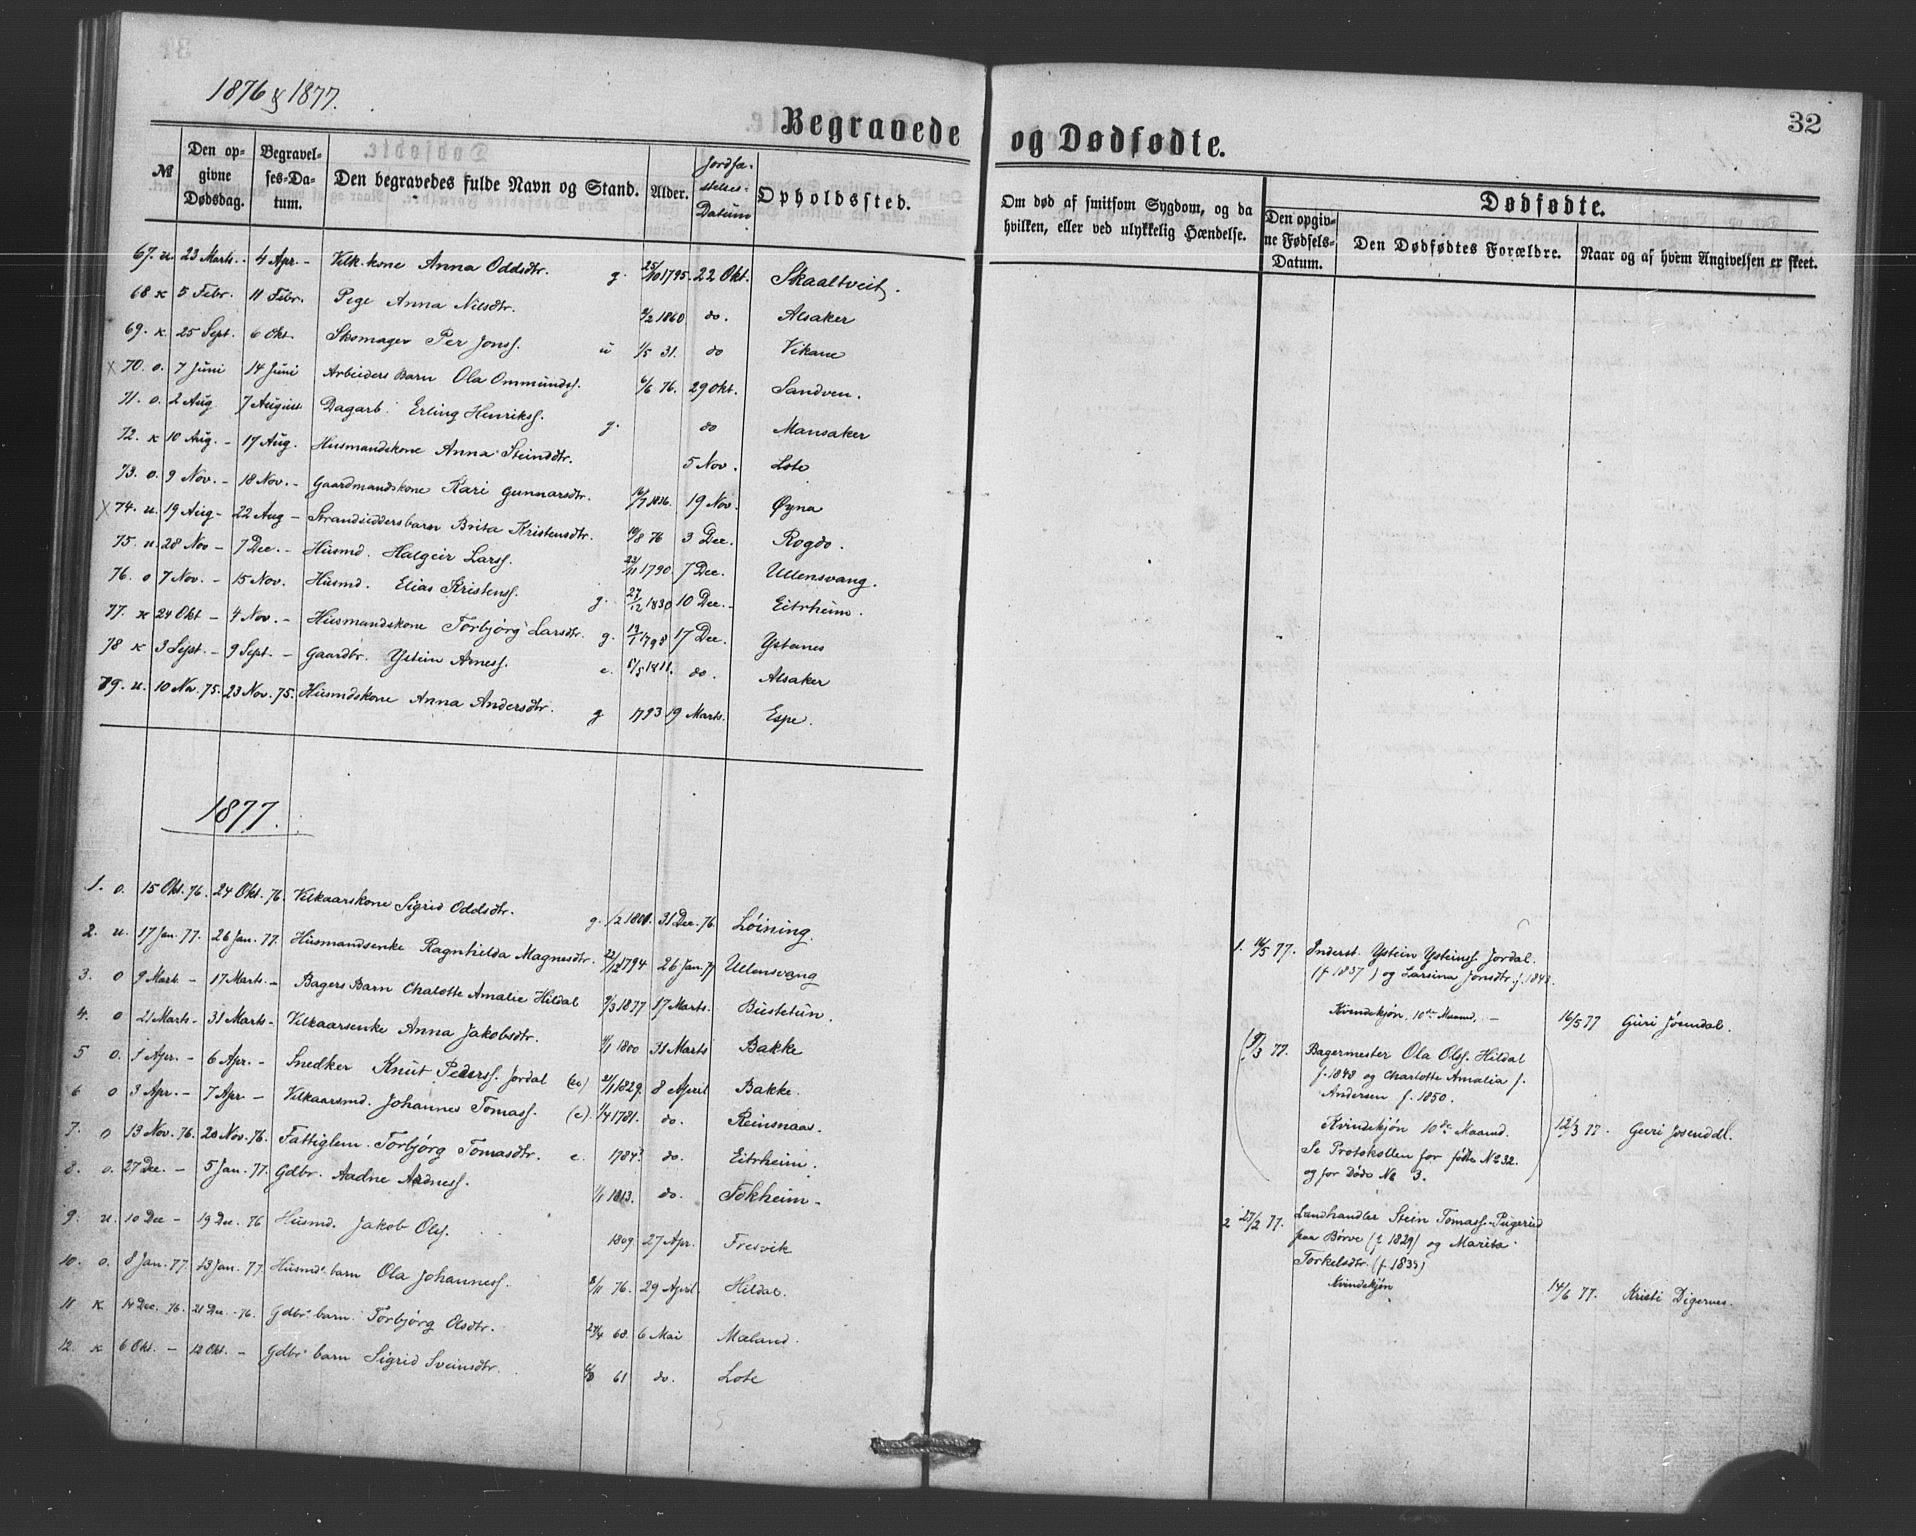 1876 & 1877.
Begravede og Dødfødte.
32
№ | Den opgivne Dødsdag. | Begravelses-Datum. | Den begravedes fulde Navn og Stand. | Alder. | Jordfæstelses-Datum | Opholdssted. | Om død af smitsom Sygdom, og da hvilken, eller ved ulykkelig Hændelse. | Dødfødte. | Den opgivne Fødsels-Datum. | Den Dødfødtes Forældre. | Naar og af hvem Angivelsen er skeet.
67. u. 23 Marts. - 4 Apr. - Vilk.kone Anna Oddsdtr. g. 25/10 1795. 22 Okt. Skaaltveit.
68 K 5 Febr. 11 Febr. Pige Anna Nilsdtr. 9/2 1860 do. Alsaker
69. K. 25 Sept. 6 Okt. Skomager Per Jonss. u 1/5 31. do Vikane
x 70. o. 7 Juni 14 Juni Arbeiders Barn Ola Ommundss. 6/6 76. 29 Okt. Sandven.
71. o. 2 Aug 7 August Dagarb. Erling Henrikss. g. do Mansaker
72. K 10 Aug. - 17 Aug. Husmandskone Anna Steindtr. 5 Nov. Lote
73. o. 9 Nov. - 18 Nov. - Gaardmandskone Kari Gunnarsdtr. 16/7 1836. 19 Nov. Øyna
x 74. u. 19 Aug - 22 Aug - Strandsiddersbarn Brita Kristensdtr. 19/8 76 3 Dec. Rogdo.
75. u. 28 Nov - 7 Dec. - Husmd. Halgeir Larss. 23/11 1790. 7 Dec. Ullensvang.
76. o 7 Nov. - 15 Nov. Husmd. Elias Kristenss. g. 27/12 1830 10 Dec. - Eitrheim.
77. K 24 Okt - 4 Nov. - Husmandskone Torbjørg Larsdtr. g. 19/1 1798 17 Dec. Ystanes
78 K 3 Sept. - 9 Sept. - Gaardbr. Ystein Arness. e. 5/5 1811. do. Alsaker
79. u. 10 Nov. 75. 23 Nov. 75. Husmdskone Anna Andersdtr. g 1793 19 Marts. Espe.
1877.
1. o. 15 Okt. 76. 24 Okt. 76 Vilkaarskone Sigrid Oddsdtr. g. 1/2 1800. 31 Dec. 76 Løining.
2. u. 17 Jan. 77. 26 Jan. 77. Husmandsenke Ragnhilda Magnesdtr. 22/12 1794 26 Jan. 77 Ullensvang
3. o 9 Mark - 17 Marts. - Bagers Barn Chalotte Amalie Hildal 9/3 1877 17 Marts. Bustetun.
4. o 21 Marts - 31 Marts - Vilkaarsenke Anna Jakobsdtr. 1/1 1800 31 Marts Bakke
5 o. 1 Apr. - 6 Apr. - Snedker Knut Pederss. Jordal (u) 21/1 1829. 8 April Bakke.
6 o 3 Apr. - 7 Apr - Vilkaarsmd. Johannes Tomass. (e). 1/4 1781. do. Reinsnaas.
7. o 13 Nov. 76. 20 Nov. 76. Fattiglem Torbjørg Tomasdtr. e. 1784? do. Eitrheim.
8. o. 27 Dec. - 5 Jan. 77. Gdbr. Aadne Aadness. 1/1 1813. do. Tokheim -
9. u. 10 Dec - 19 Dec. 76 Husmd. Jakob Olss. 1809. 27 Apr. Fresvik
10. o. 8 Jan. 77. 13 Jan. 77. Husmds barn Ola Johanness. 8/11 76. 29 April. Hildal.
11 K 14 Dec. 76. 21 Dec. 76. Gdbrs barn Torbjørg Olsdtr. 24/4 68. 6 Mai Mæland.
12. K 6 Okt. - 12 Okt. - Gdbrs barn Sigrid Sveinsdtr. 61 do. Lote
1. 16/5 77. Inderst. Ystein Ysteinss. Jordal.
(f. 1837) og Larsina Jonsdtr. f. 1843.
Kvindekjøn, 10de Maaned. - 16/5 77 Guri Jøsendal.
(9/3 77. Bagermester Ola Olss. Hildal
f. 1848 og Charlotte Amalia f.
Andersen f. 1850.
Kvindekjøn 10de Maaned. 12/3 77. Guri Jøsenddl.
Se Protokollen for fødte № 32.
og for Døde № 3.
2 27/2 77. Landhandler Stein Tomass.
paa Børve (f 1829) og Marita
Torkelsdtr. (f. 1835)
Kvindekjøn 14/6 77. Kristi Digernes.